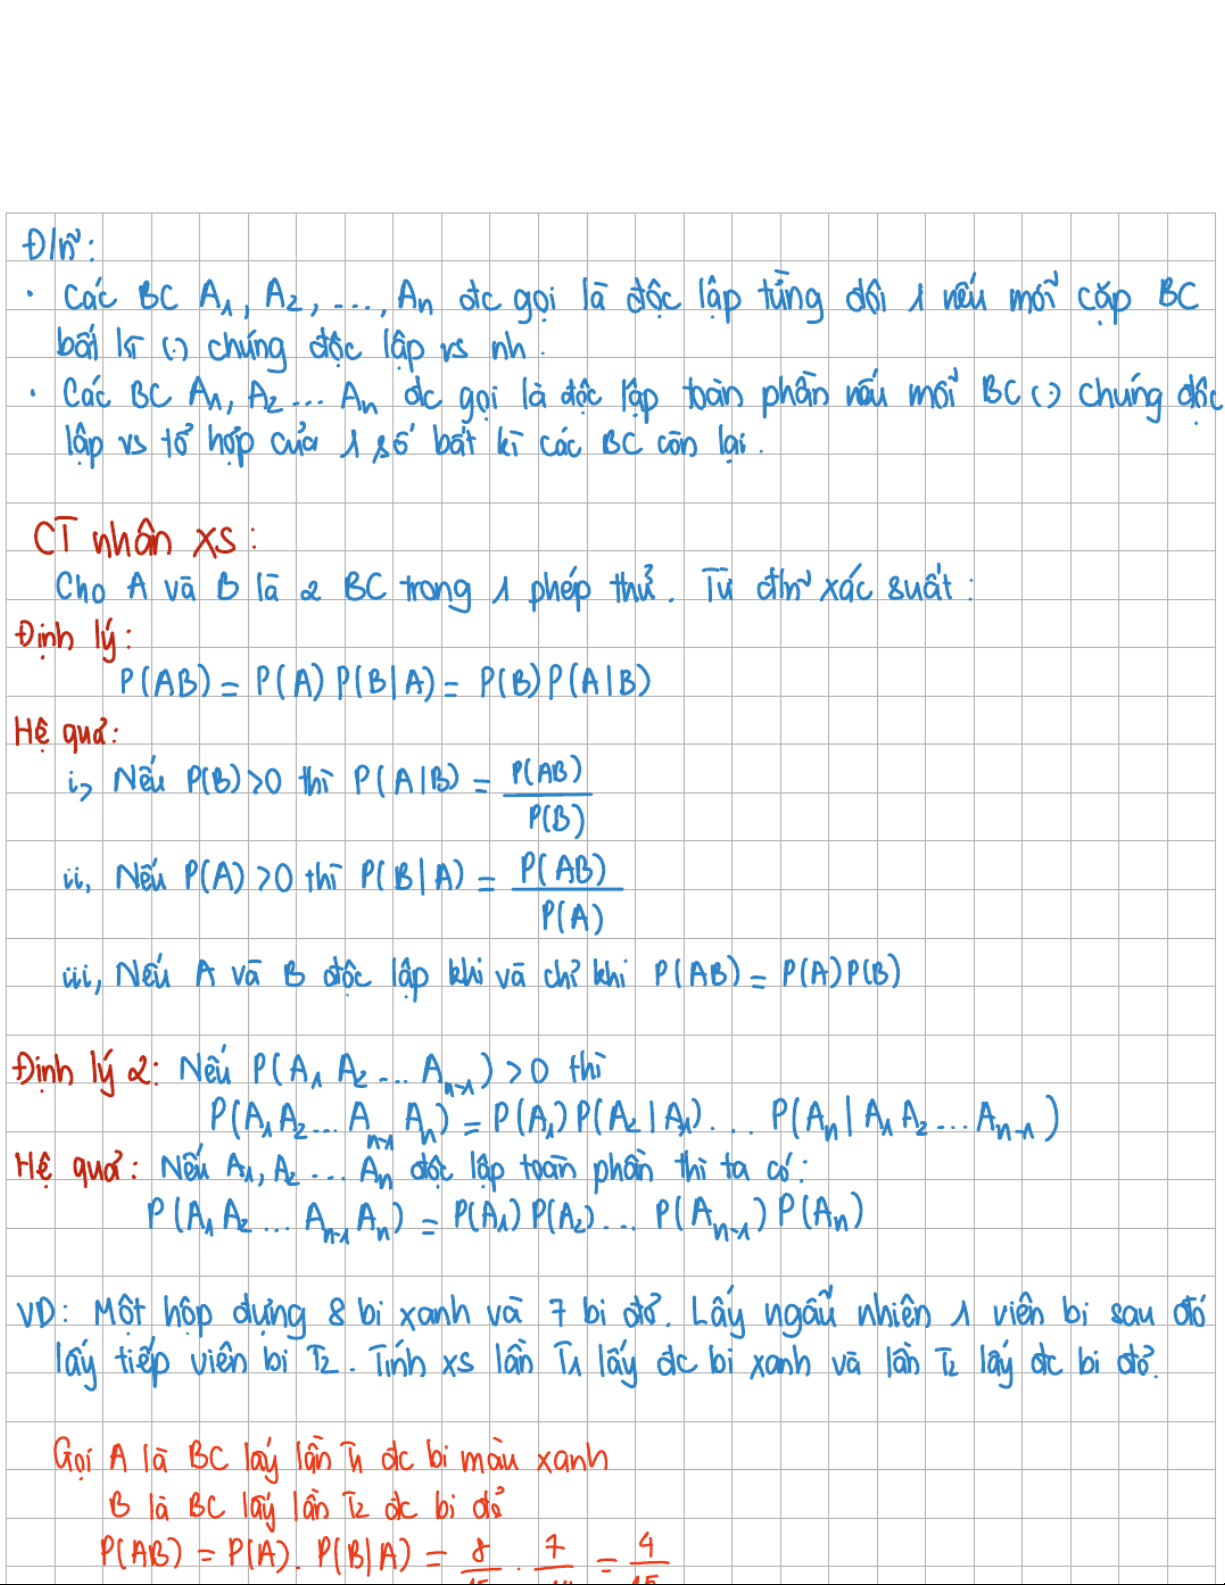 Đ/n~:
· Các BC A₁, A₂, ..., Aₙ đc gọi là độc lập từng đôi 1 nếu mỗi cặp BC
bất kì (.) chúng độc lập vs nh.
· Các BC A₁, A₂... Aₙ đc gọi là độc lập toàn phần nếu mỗi BC (.) chúng độc
lập vs tổ hợp của 1 số bất kì các BC còn lại.
CT nhân XS:
Cho A và B là 2 BC trong 1 phép thử. Từ đ/n~ xác suất:
Định lý:
P(AB) = P(A) P(B|A) = P(B) P(A|B)
Hệ quả:
i, Nếu P(B) > 0 thì P(A|B) = P(AB)/P(B)
ii, Nếu P(A) > 0 thì P(B|A) = P(AB)/P(A)
iii, Nếu A và B độc lập khi và chỉ khi P(AB) = P(A) P(B)
Định lý 2: Nếu P(A₁ A₂ ... Aₙ₋₁) > 0 thì
P(A₁ A₂ ... Aₙ₋₁ Aₙ) = P(A₁) P(A₂ | A₁) .... P(Aₙ | A₁ A₂ ... Aₙ₋₁)
Hệ quả: Nếu A₁, A₂ ... Aₙ độc lập toàn phần thì ta có:
P(A₁ A₂ ... Aₙ₋₁ Aₙ) = P(A₁) P(A₂) ... P(Aₙ₋₁) P(Aₙ)
VD: Một hộp đựng 8 bi xanh và 7 bi đỏ. Lấy ngẫu nhiên 1 viên bi sau đó
lấy tiếp viên bi T2. Tính xs lần T1 lấy đc bi xanh và lần T2 lấy đc bi đỏ.
Gọi A là BC lấy lần T1 đc bi màu xanh
B là BC lấy lần T2 đc bi đỏ
P(AB) = P(A). P(B|A) = 8/15 . 7/14 = 4/15